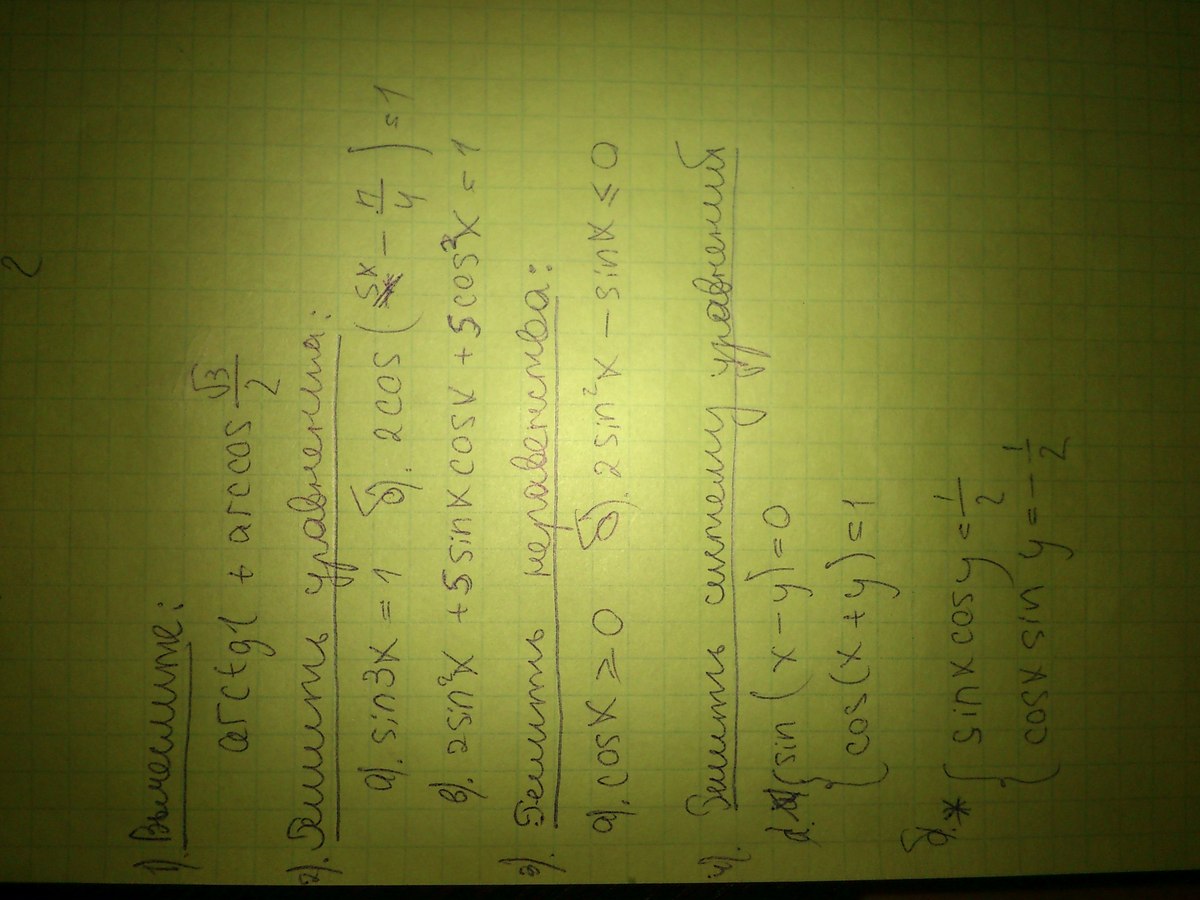 2
1). Вычислите:
arctg1 + arccos √3/2
2). Решить уравнения:
а). sin3x = 1 б). 2cos(5x - π/4) = 1
в). 2sin²x + 5sinx cosx + 5cos²x = 1
3). Решить неравенства:
а). cosx ≥ 0 б). 2sin²x - sinx ≤ 0
4). Решить систему уравнений
{sin(x-y)=0
{cos(x+y)=1
б.* {sinx cosy = 1/2
{cosx sin y = -1/2